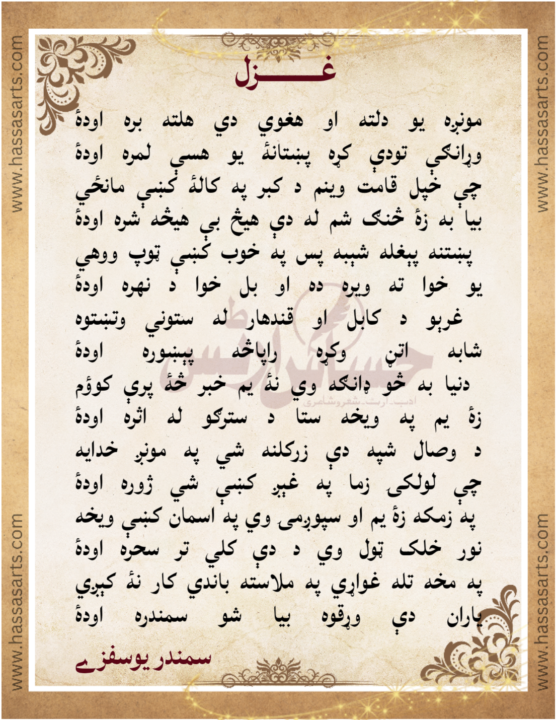 غـــــزل
مونږه يو دلته او هغوي دي هلته بره اودۀ
وړانګې تودې کړه پښتانۀ يو هسې لمره اودۀ
چې خپل قامت وينم د کبر په کالۀ کښې مانځي
بيا به زۀ څنګ شم له دې هيڅ بې هيڅه شره اودۀ
پښتنه پېغله شپبه پس په خوب کښې ټوپ ووهي
يو خوا ته ويره ده او بل خوا د نهره اودۀ
غرېو د کابل او قندهار له ستوني وتښتوه
شابه اتڼ وکړه راپاڅه پېښوره اودۀ
دنيا به څو ډانګه وي نۀ يم خبر څۀ پرې کوؤم
زۀ يم په ويخه ستا د سترګو له اثره اودۀ
د وصال شپه دې زرکلنه شي په مونږ خدايه
چې لولکۍ زما په غېږ کښې شي ژوره اودۀ
په زمکه زۀ يم او سپوږمۍ وي په اسمان کښې ويخه
نور خلک ټول وي د دې کلي تر سحره اودۀ
په مخه تله غواړي په ملاسته باندې کار نۀ کېږي
ياران دې ورقوه بيا شو سمندره اودۀ
سمندر يوسفزے
حساس ارټس
ادب، آرټ، شعروشاعري
www.hassasarts.com
www.hassasarts.com
www.hassasarts.com
www.hassasarts.com